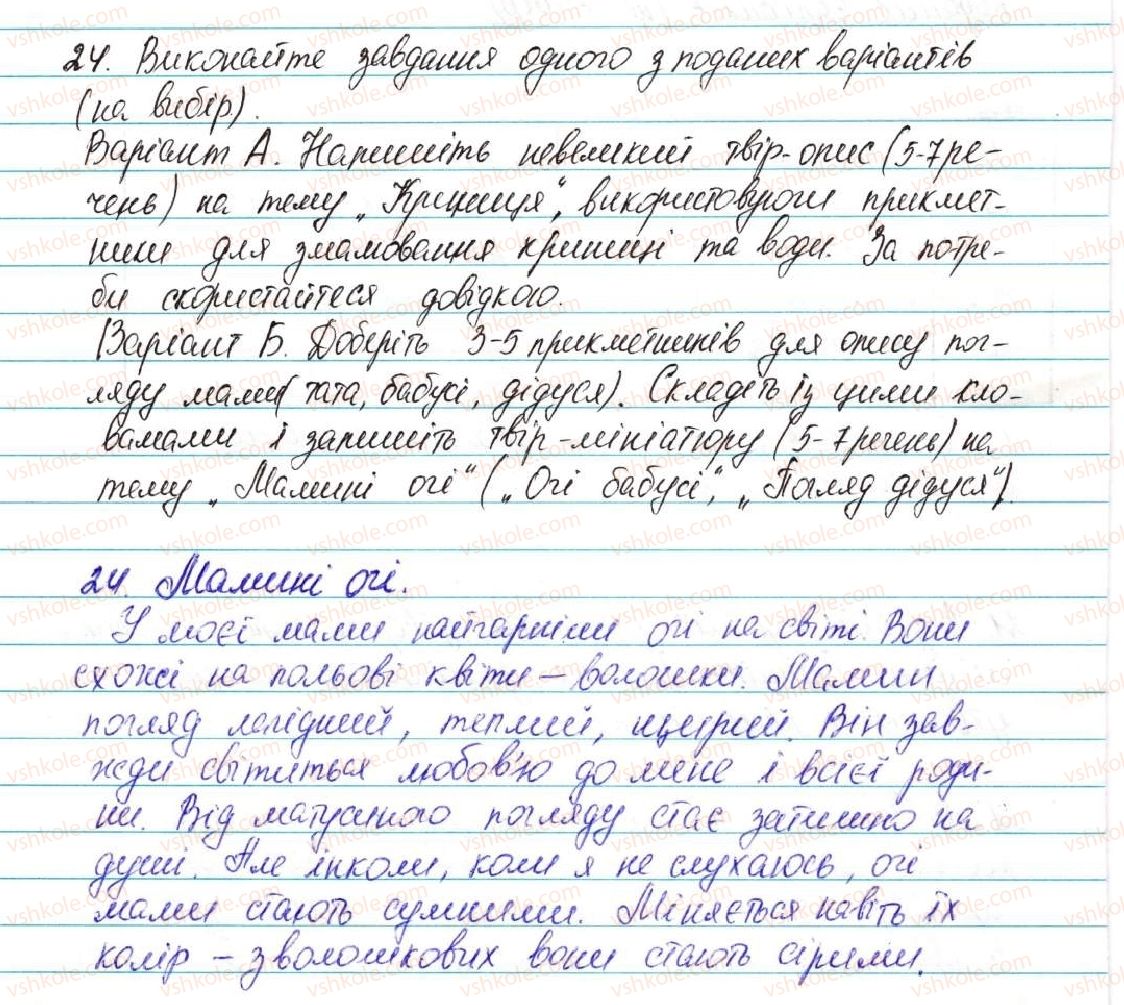 24. Виконайте завдання одного з поданих варіантів
(на вибір).
Варіант А. Напишіть невеликий твір-опис (5-7 ре-
чень) на тему „Криниця“, використовуючи прикмет-
ники для змалювання криниці та води. За потре-
би скористайтеся довідкою.
Варіант Б. Доберіть 3-5 прикметників для опису пог-
ляду мами (тата, бабусі, дідуся). Складіть із цими сло-
вами і запишіть твір-мініатюру (5-7 речень) на
тему „Мамині очі“ („Очі бабусі“, „Погляд дідуся“).
24. Мамині очі.
У моєї мами найгарніши очі на світі. Вони
схожі на польові квіти – волошки. Мамин
погляд лагідний, теплий, щирий. Він зав-
жди світиться любов'ю до мене і всієї роди-
ни. Від матусиного погляду стає затишно на
душі. Але інколи, коли я не слухаюсь, очі
мами стають сумними. Міняється навіть їх
колір – з волошкових вони стають сірими.